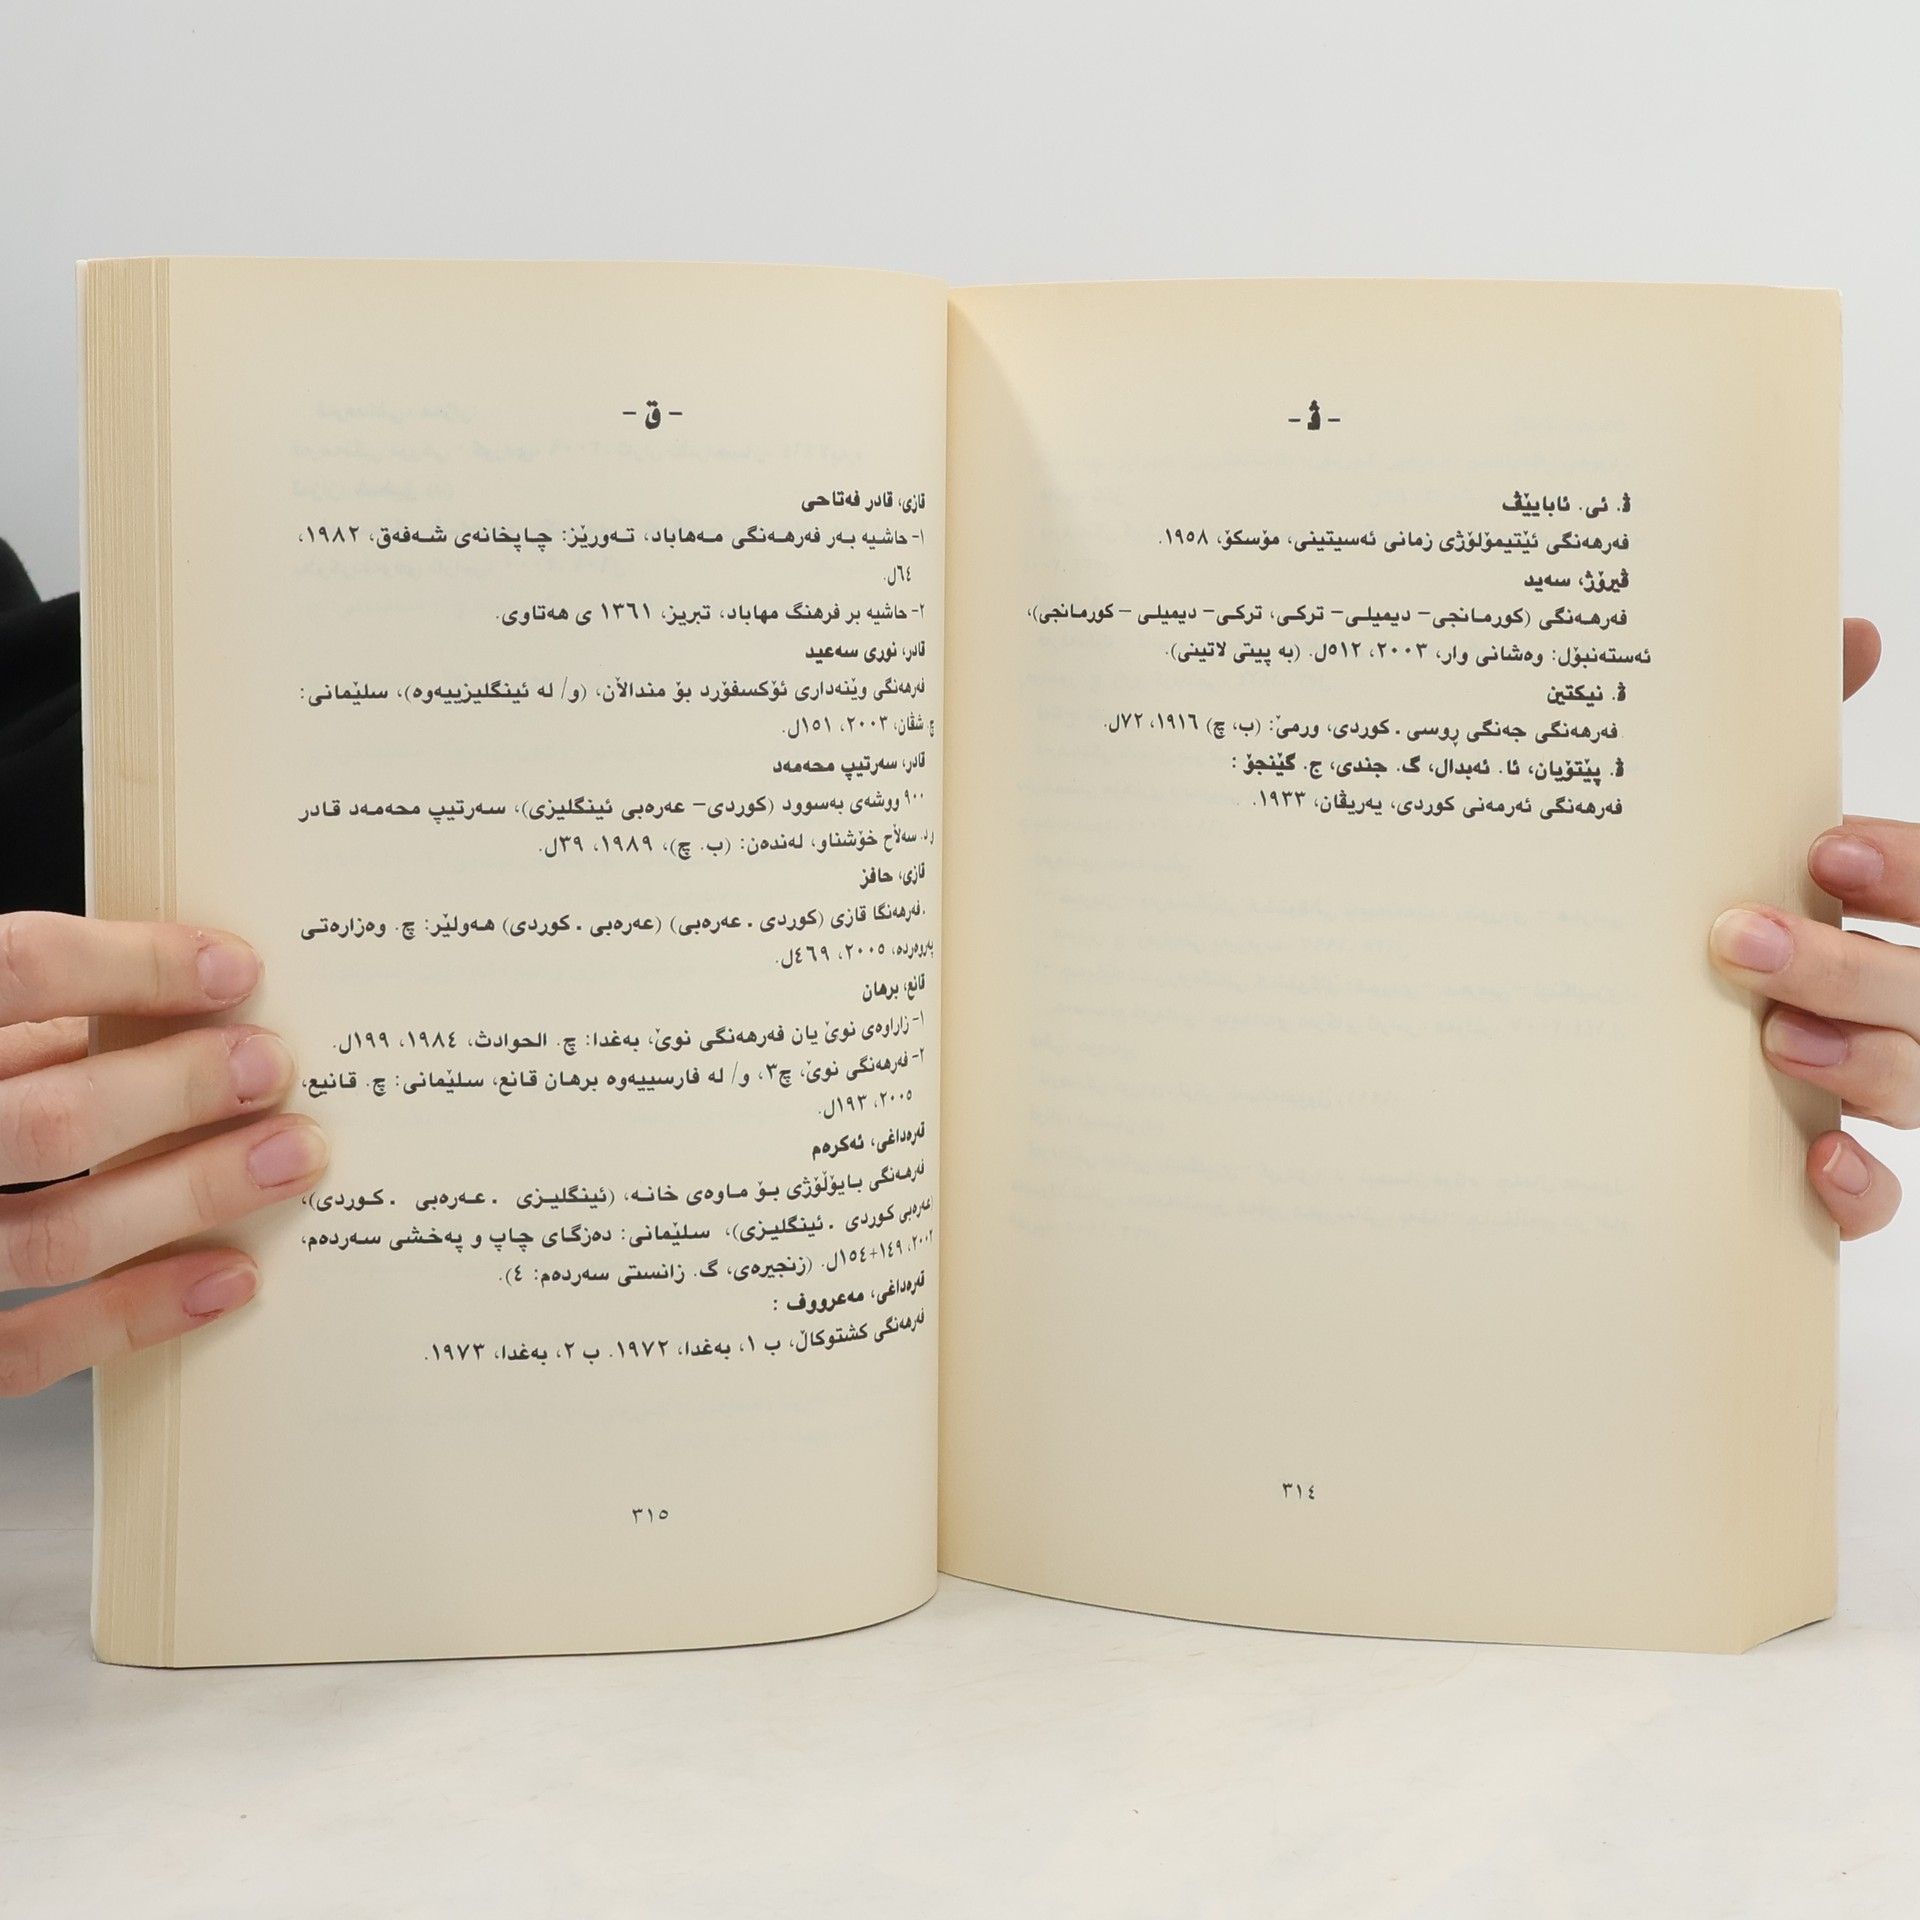 - ڤ -
ڤ. ئی. ئابایێڤ
فەرهەنگی ئێتیمۆلۆژی زمانی ئەسیتینی، مۆسکۆ، ١٩٥٨.
ڤیرۆژ، سەید
فەرهەنگی (کورمانجی- دیمیلی- ترکی، ترکی- دیمیلی -کورمانجی)،
ئەستەنبۆل: وەشانی وار، ٢٠٠٣، ٥١٢ل. (بە پیتی لاتینی).
ڤ. نیکتین
فەرهەنگی جەنگی ڕوسی . کوردی، ورمێ: (ب، چ) ١٩١٦، ٧٢ل.
ڤ. پێتۆیان، ئا. ئەبدال، گ. جندی، ج. گێنجۆ :
فەرهەنگی ئەرمەنی کوردی، یەریڤان، ١٩٣٣.
٣١٤
- ق -
قازی، قادر فەتاحی
١- حاشیە بەر فەرهەنگی مەهاباد، تەورێز: چاپخانەی شەفەق، ١٩٨٢،
٦٤ل.
٢- حاشیە بر فرهنگ مهاباد، تبریز، ١٣٦١ ی هەتاوی.
قادر، نوری سەعید
فەرهەنگی وێنەداری ئۆکسفۆرد بۆ منداڵان، (و/ لە ئینگلیزییەوە)، سلێمانی:
چ. شڤان، ٢٠٠٣، ١٥١ل.
قادر، سەرتیپ محەمەد
٩٠٠ ووشەی بەسوود (کوردی- عەرەبی ئینگلیزی)، سەرتیپ محەمەد قادر
و د. سەڵاح خۆشناو، لەندەن: (ب. چ)، ١٩٨٩، ٣٩ل.
قازی، حافز
.فەرهەنگا قازی (کوردی . عەرەبی) (عەرەبی . کوردی) هەولێر: چ. وەزارەتی
پەروەردە، ٢٠٠٥، ٤٦٩ل.
قانع، برهان
١- زاراوەی نوێ یان فەرهەنگی نوێ، بەغدا: چ. الحوادث، ١٩٨٤، ١٩٩ل.
٢- فەرهەنگی نوێ، چ٣، و/ لە فارسییەوە برهان قانع، سلێمانی: چ. قانیع،
٢٠٠٥، ١٩٣ل.
قەرەداغی، ئەکرەم
فەرهەنگی بایۆڵۆژی بۆ ماوەی خانە، (ئینگلیزی . عەرەبی . کوردی)،
(عەرەبی کوردی . ئینگلیزی)، سلێمانی: دەزگای چاپ و پەخشی سەردەم،
٢٠٠٢، ١٤٩+١٥٤ل. (زنجیرەی، گ. زانستی سەردەم: ٤).
قەرەداغی، مەعرووف :
فەرهەنگی کشتوکاڵ، ب ١، بەغدا، ١٩٧٢. ب ٢، بەغدا، ١٩٧٣.
٣١٥